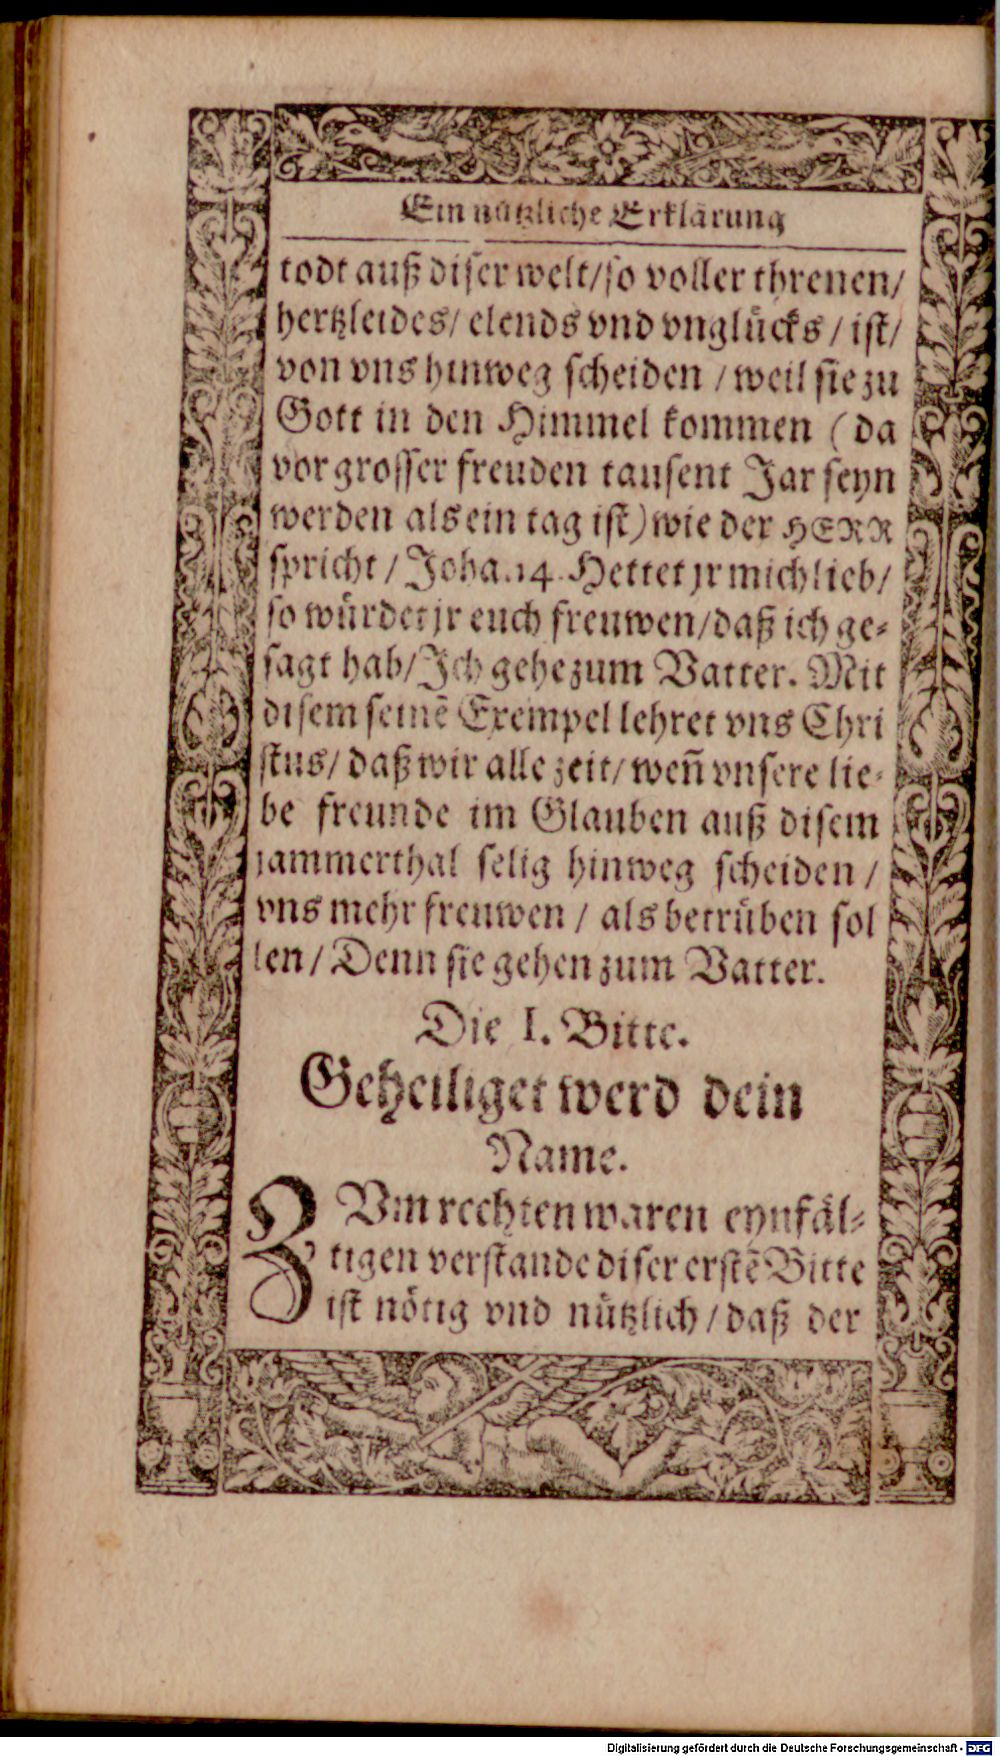 Ein nützliche Erklärung
todt auß diser welt/so voller threnen/
hertzleides/ elends vnd vnglücks / ist/
von vns hinweg scheiden / weil sie zu
Gott in den Himmel kommen (da
vor grosser freuden tausent Jar seyn
werden als ein tag ist) wie der HERR
spricht / Joha.14. Hettet jr mich lieb/
so würdet jr euch freuwen/daß ich ge-
sagt hab/Ich gehe zum Vatter. Mit
disem seinē Exempel lehret vns Chri
stus/ daß wir alle zeit/ weñ vnsere lie-
be freunde im Glauben auß disem
jammerthal selig hinweg scheiden /
vns mehr freuwen / als betrüben sol
len / Denn sie gehen zum Vatter.
Die I. Bitte.
Geheiliget werd dein
Name.
ZVm rechten waren eynfäl-
tigen verstande diser erstē Bitte
ist nötig vnd nützlich / daß der
Digitalisierung gefördert durch die Deutsche Forschungsgemeinschaft - DFG